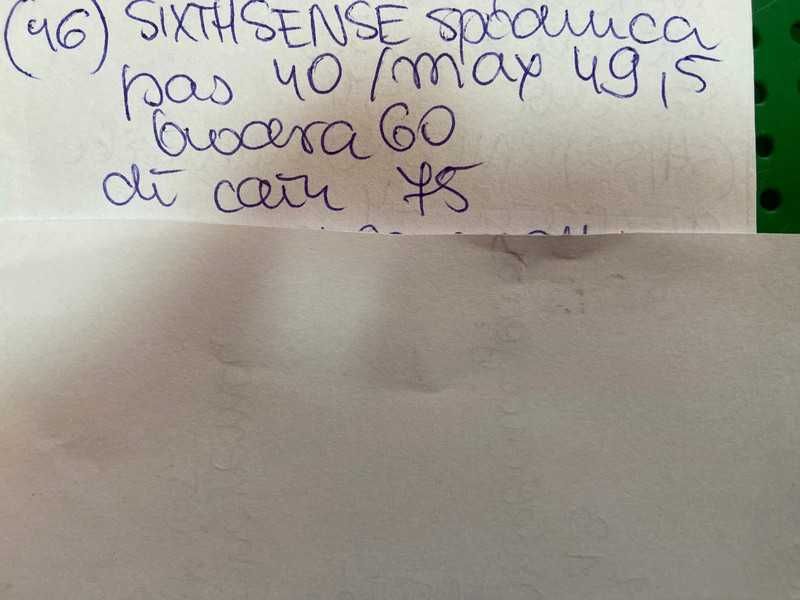 (46) SIXTHSENSE spódnica
pas 40 / max 49,5
biodra 60
dł całk 75